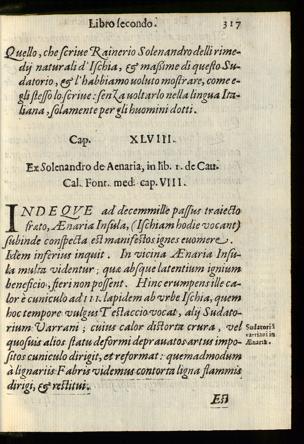 Libro secondo. 317
Quello, che scriue Rainerio Solenandro delli rime-
dij naturali d'Ischia, & maßime di questo Su-
datorio, & l'habbiamo voluto mostrare, come e-
gli stesso lo scriue: senza voltarlo nella lingua Ita-
liana, solamente per gli huomini dotti.
Cap. XLVIII.
Ex Solenandro de Aenaria, in lib. 1. de Cau.
Cal. Font. med. cap. VIII.
INDEQVE ad decemmille passus traiecto
frato, Ænaria Insula, (Ischiam hodie vocant)
subinde conspecta est manifestos ignes euomere.
Idem inferius inquit. In vicina Ænaria Insu-
la multa videntur; quæ absque latentium ignium
beneficio, fieri non possent. Hinc erumpens ille ca-
lor è cuniculo ad III. lapidem ab vrbe Ischia, quem
hoc tempore vulgus Testaccio vocat, alij Sudato-
rium Varrani; cuius calor distorta crura, vel
quosuis alios statu deformi deprauatos artus impo-
sitos cuniculo dirigit, et reformat: quemadmodum
à lignariis Fabris videmus contorta ligna flammis
dirigi, & restitui.
Sudatorij
varrani in
Ænaria.
Est